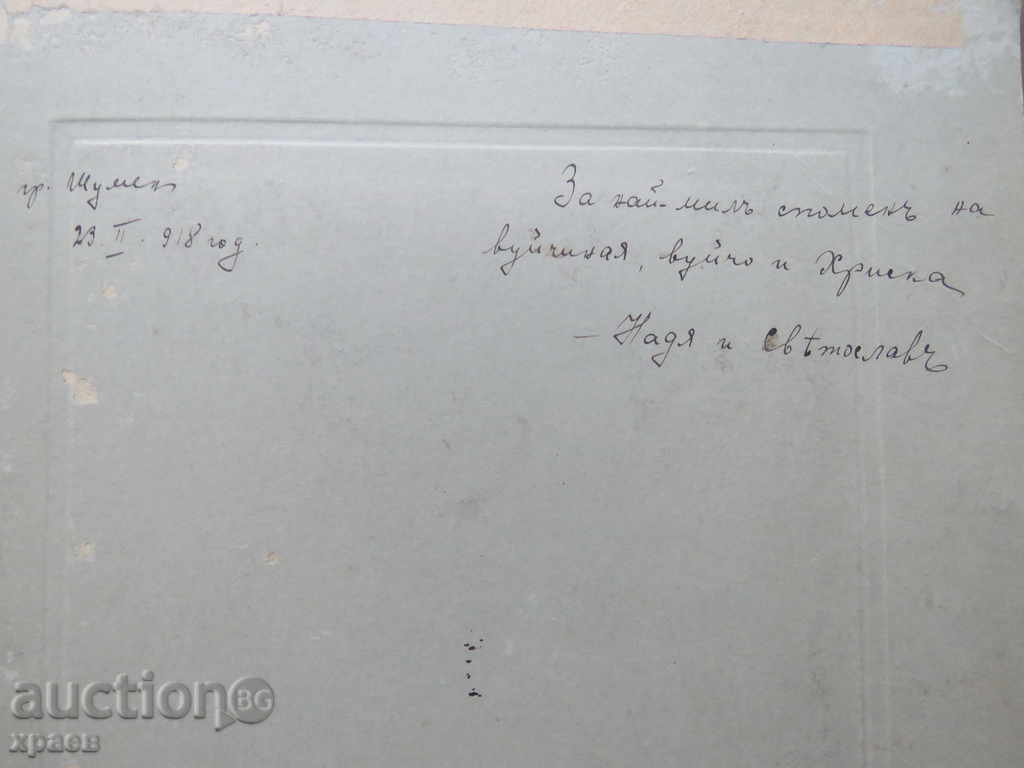 гр. Шуменъ
23. II. 918 год.
За най-милъ споменъ на
вуйчиная, вуйчо и Хриска
– Надя и Свѣтославъ
auctionBG
храев